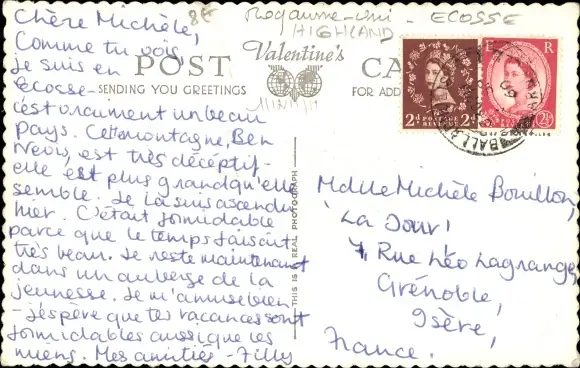 8€ Royaume-Uni - ECOSSE
HIGHLAND
Chère Michèle,
Comme tu vois
je suis en
Ecosse-
c'est vraiment un beau
pays. Cette montagne, Ben
Nevis, est très déceptif-
elle est plus grand qu'elle
semble. Je la suis ascendu
hier. C'était formidable
parce que le temps faisait
très beau. Je reste maintenant
dans un auberge de la
jeunesse. Je m'amuse bien
- j'espère que tes vacances sont
formidables aussi que les
miens. Mes amitiés - Filly
POST CA
Valentine's
SENDING YOU GREETINGS
FOR ADD
THIS IS A REAL PHOTOGRAPH
2d POSTAGE REVENUE 2d
E R
2½
BALLA
Mdlle Michèle Bouillon,
La Jour!
7, Rue Léo Lagrange,
Grénoble,
Isère,
France.